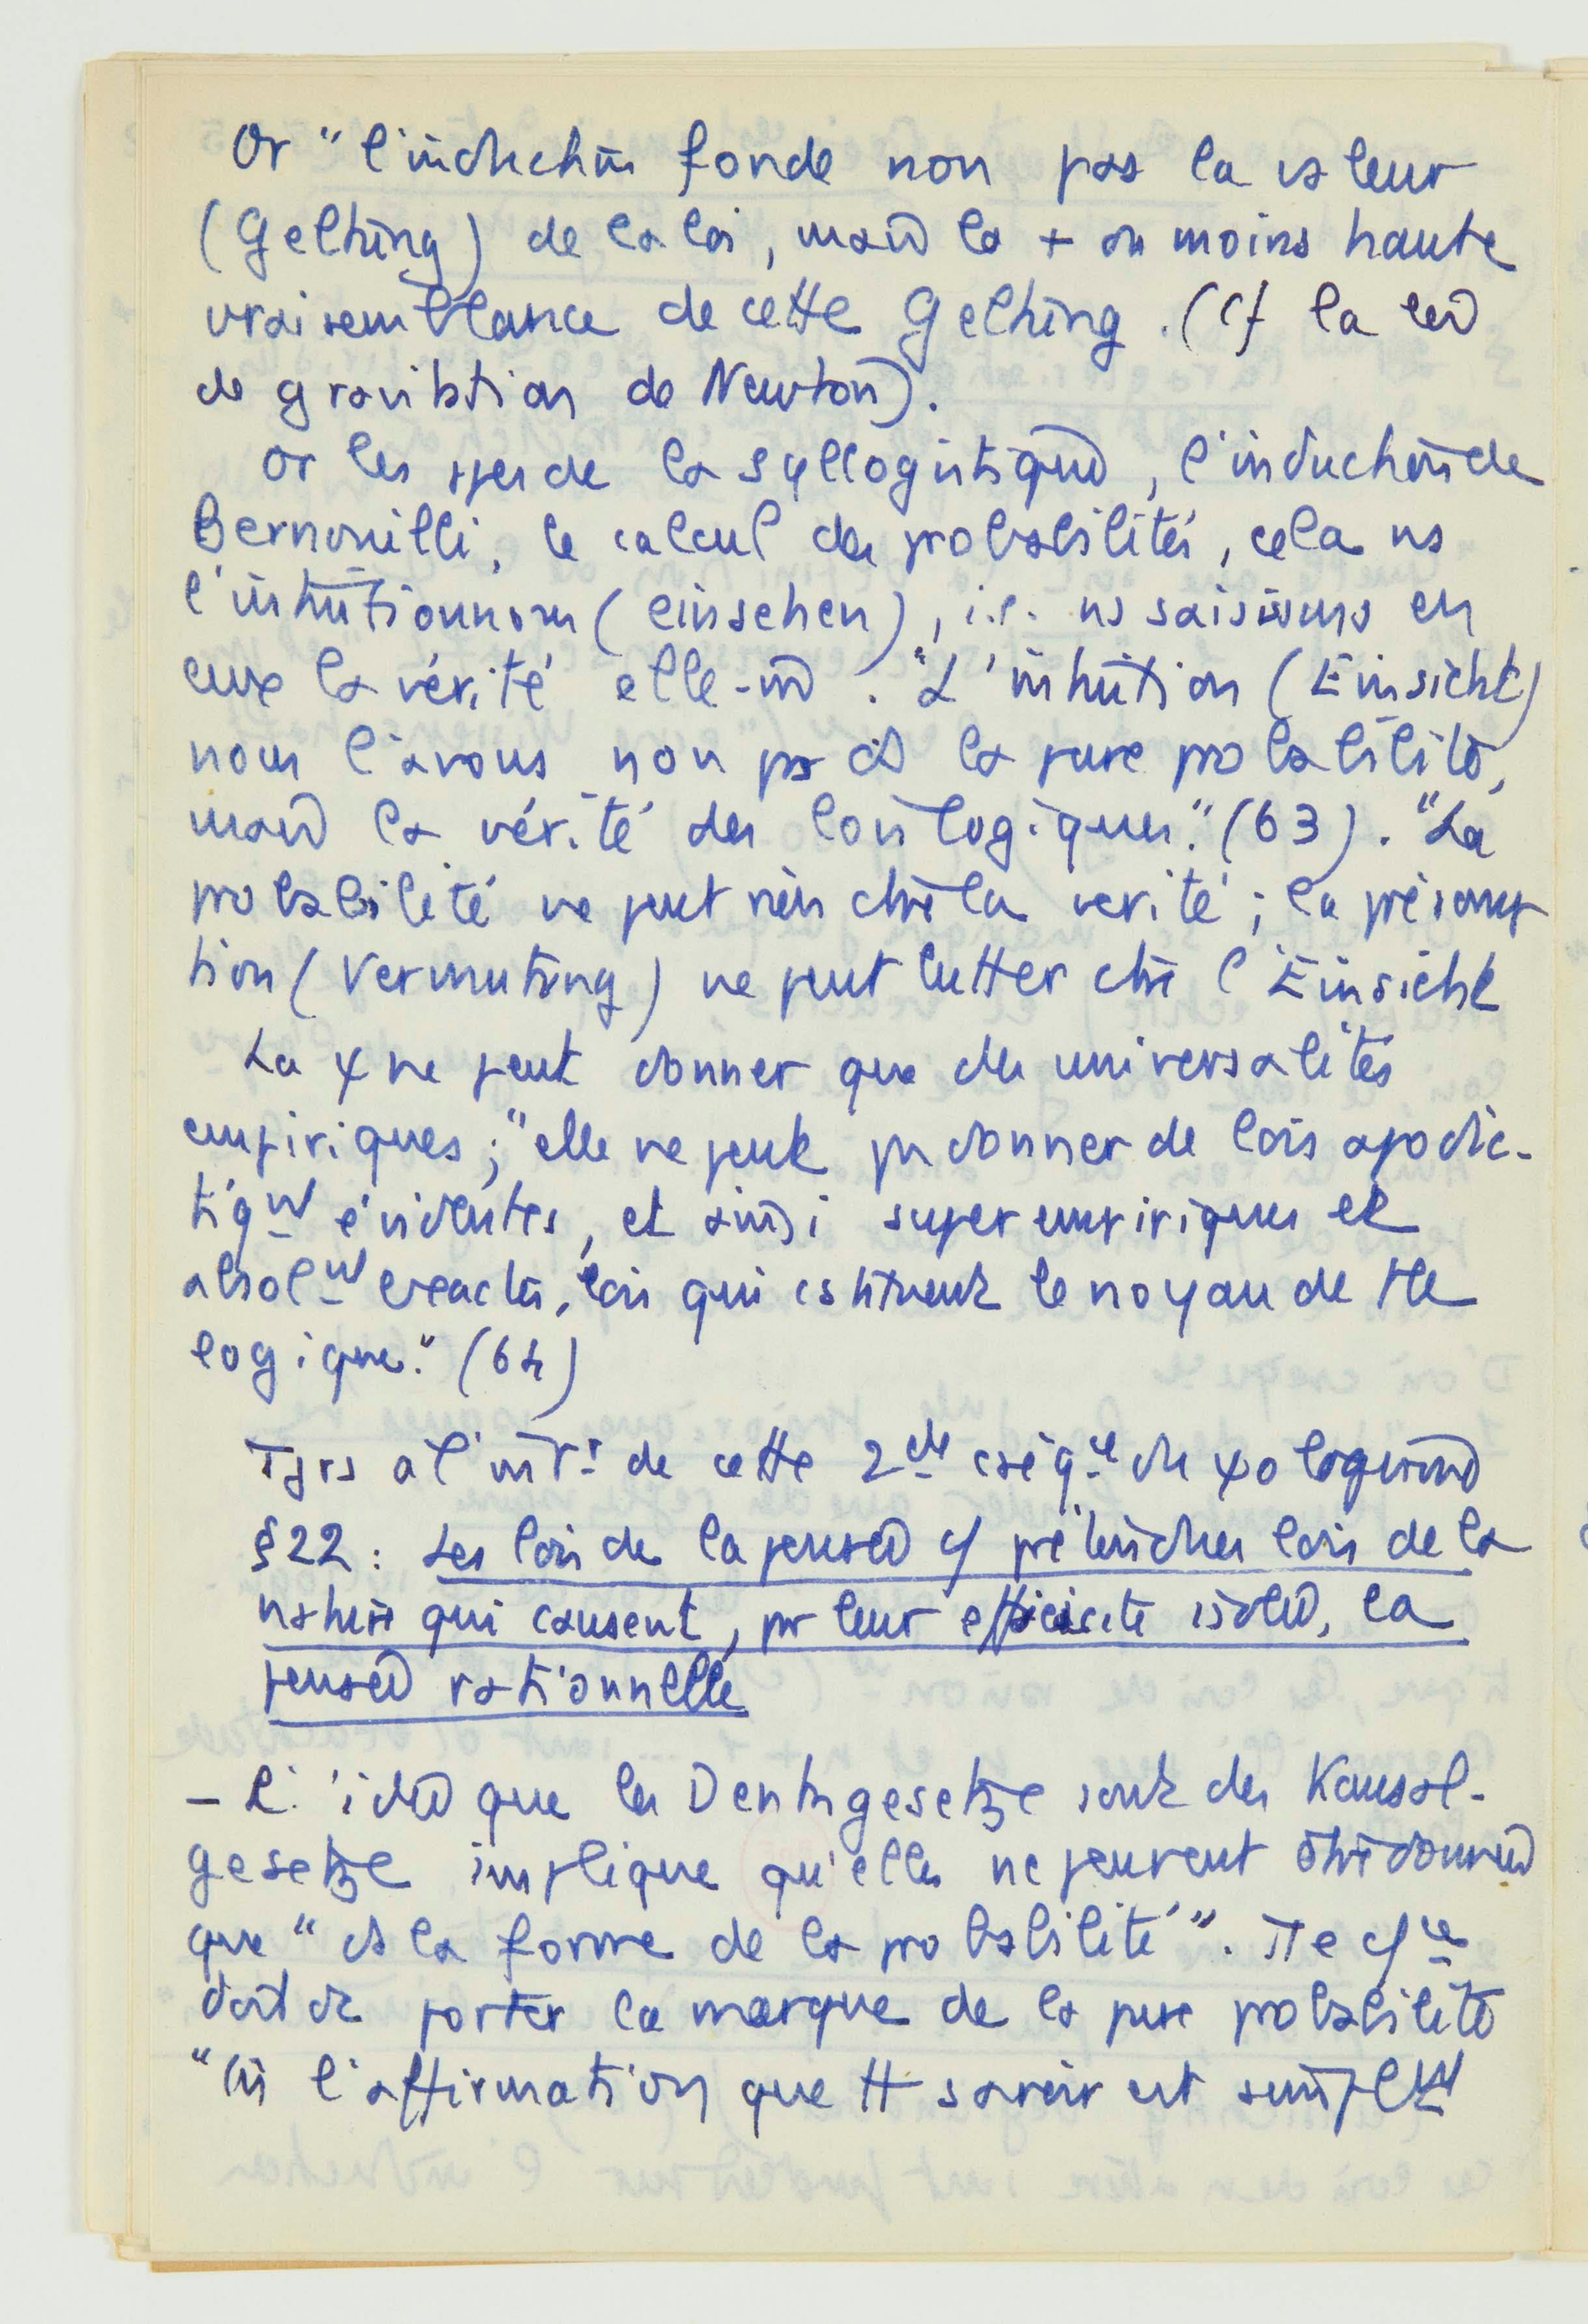 Or "l'induction fonde non pas la valeur
(Geltung) de la loi, mais la + ou moins haute
vraisemblance de cette Geltung. (Cf la loi
de gravitation de Newton).
Or les ppes de la syllogistique, l'induction de
Bernouilli, le calcul des probabilités, cela ns
l'intuitionnons (einsehen), i.e. ns saisissons en
eux la vérité elle-m̄. "L'intuition (Einsicht)
nous l'avons non pas ds la pure probabilité,
mais la vérité des lois logiques." (63). "La
probabilité ne peut rien ctre la vérité ; la présomp
tion (Vermutung) ne peut lutter ctre l'Einsicht
La ψ ne peut donner que des universalités
empiriques ; "elle ne peut pas donner de lois apodic-
tiqt évidentes, et ainsi superempiriques et
absolt exactes, lois qui cstituent le noyau de tte
logique." (64)
Tjrs à l'intr de cette 2de cséqce du ψologisme
§22 : Les lois de la pensée cō prétendues lois de la
nature qui causent, par leur efficacité isolée, la
pensée rationnelle
- L'idée que les Denkgesetze sont des Kausal-
gesetze implique qu'elles ne peuvent être données
que "ds la forme de la probabilité". Tte csce
doit dc porter la marque de la pure probabilité
l'affirmation que tt savoir est simplet